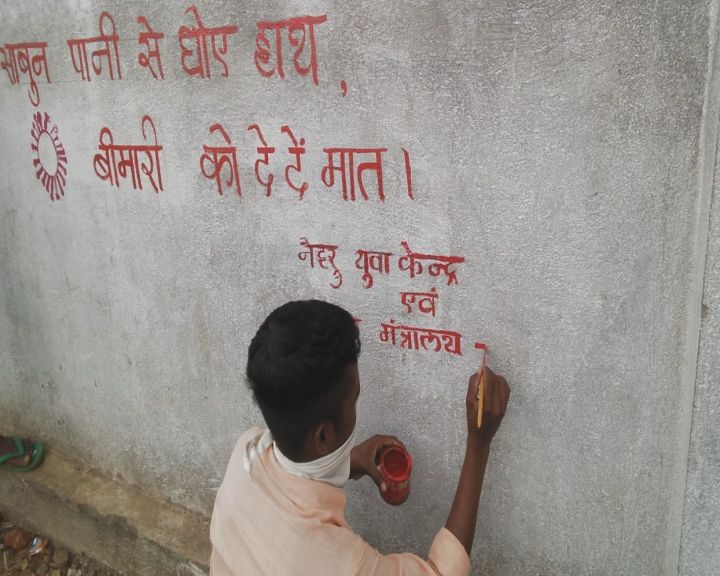 साबुन पानी से धोए हाथ,
बीमारी को दे दें मात।
नेहरु युवा केन्द्र
एवं
मंत्रालय